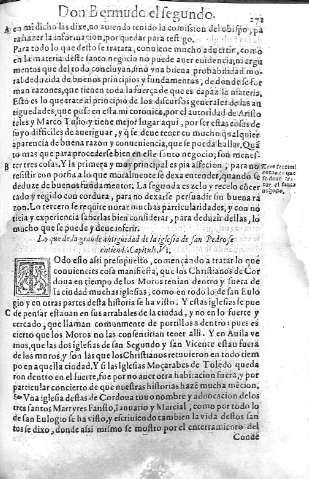 Don Bermudo el segundo. 272
A en mi dicho las dixe, no auiendo tenido la comission del obispo, pa
ra hazer la informacion, por quedar para testigo.
Para todo lo que desto se tratara, conuiene mucho aduertir, como
en la materia deste santo negocio no puede auer euidencia, ni argu
mentos que del todo concluyan, sino vna buena probabilidad mo-
ral deduzida de buenos principios y fundamentos, de donde se for
man razones, que tienen toda la fuerça de que es capaz la materia.
Esto es lo que trate al principio de los discursos generales de las an
tiguedades, que puse en esta mi coronica, por el autoridad de Aristo
teles y Marco Tulio y tiene mejor lugar aqui, por ser estas cosas de
suyo dificiles de aueriguar, y q̃ se deue tener en mucho qualquier
aparencia de buena razon y conueniencia, que se pueda hallar. Quã
to mas que para proceder se bien en este santo negocio, son menes
B ter tres cosas. Y la primera y mas principal es pia affection, para no
resistir con porfia a lo que moralmente se dexa entender, quando se
deduze de buenos fundamentos. La segunda es zelo y recelo concer
tado y regido con cordura, para no dexarse persuadir sin buena ra
zon. Lo tercero se requiere notar muchas particularidades, y con no
ticia y experiencia saberlas bien considerar, para deduzir dellas, lo
mucho que se puede y deue inferir.
Lo que de la grande antiguedad de la iglesia de san Pedro se
entiende. Capitulo.
Todo esto assi presupuesto, començando a tratar lo que
conuiene es cosa manifiesta, que los Christianos de Cor
doua en tiempo de los Moros tenian dentro y fuera de
la ciudad muchas iglesias, como en todo lo de san Eulo
gio y en otras partes desta historia se ha visto. Y estas iglesias se pue
C de pensar estauan en sus arrabales de la ciudad, y no en lo fuerte y
cercado, que llaman comunmente de portillos a dentro: pues es
cierto que los Moros no las consentirian tener alli. Y en Auila ve
mos, que las dos iglesias de san Segundo y san Vicente estan fuera
de los muros, y son las que los Christianos retuuieron en todo tiem
po en aquella ciudad. Y si las iglesias Moçarabes de Toledo queda
ron dentro en el fuerte, fue por no auer otra habitacion fuera, y por
particular concierto de que nuestras historias hazẽ mucha mẽcion.
Vna iglesia destas de Cordoua tuuo nombre y aduocacion de los
tres santos Martyres Fausto, Ianuario y Marcial, como por todo lo
de san Eulogio se ha visto, y escriuiendo tambien la vida destos san
tos se dixo, donde assi mismo se mostro por el enterramiento del
Conde